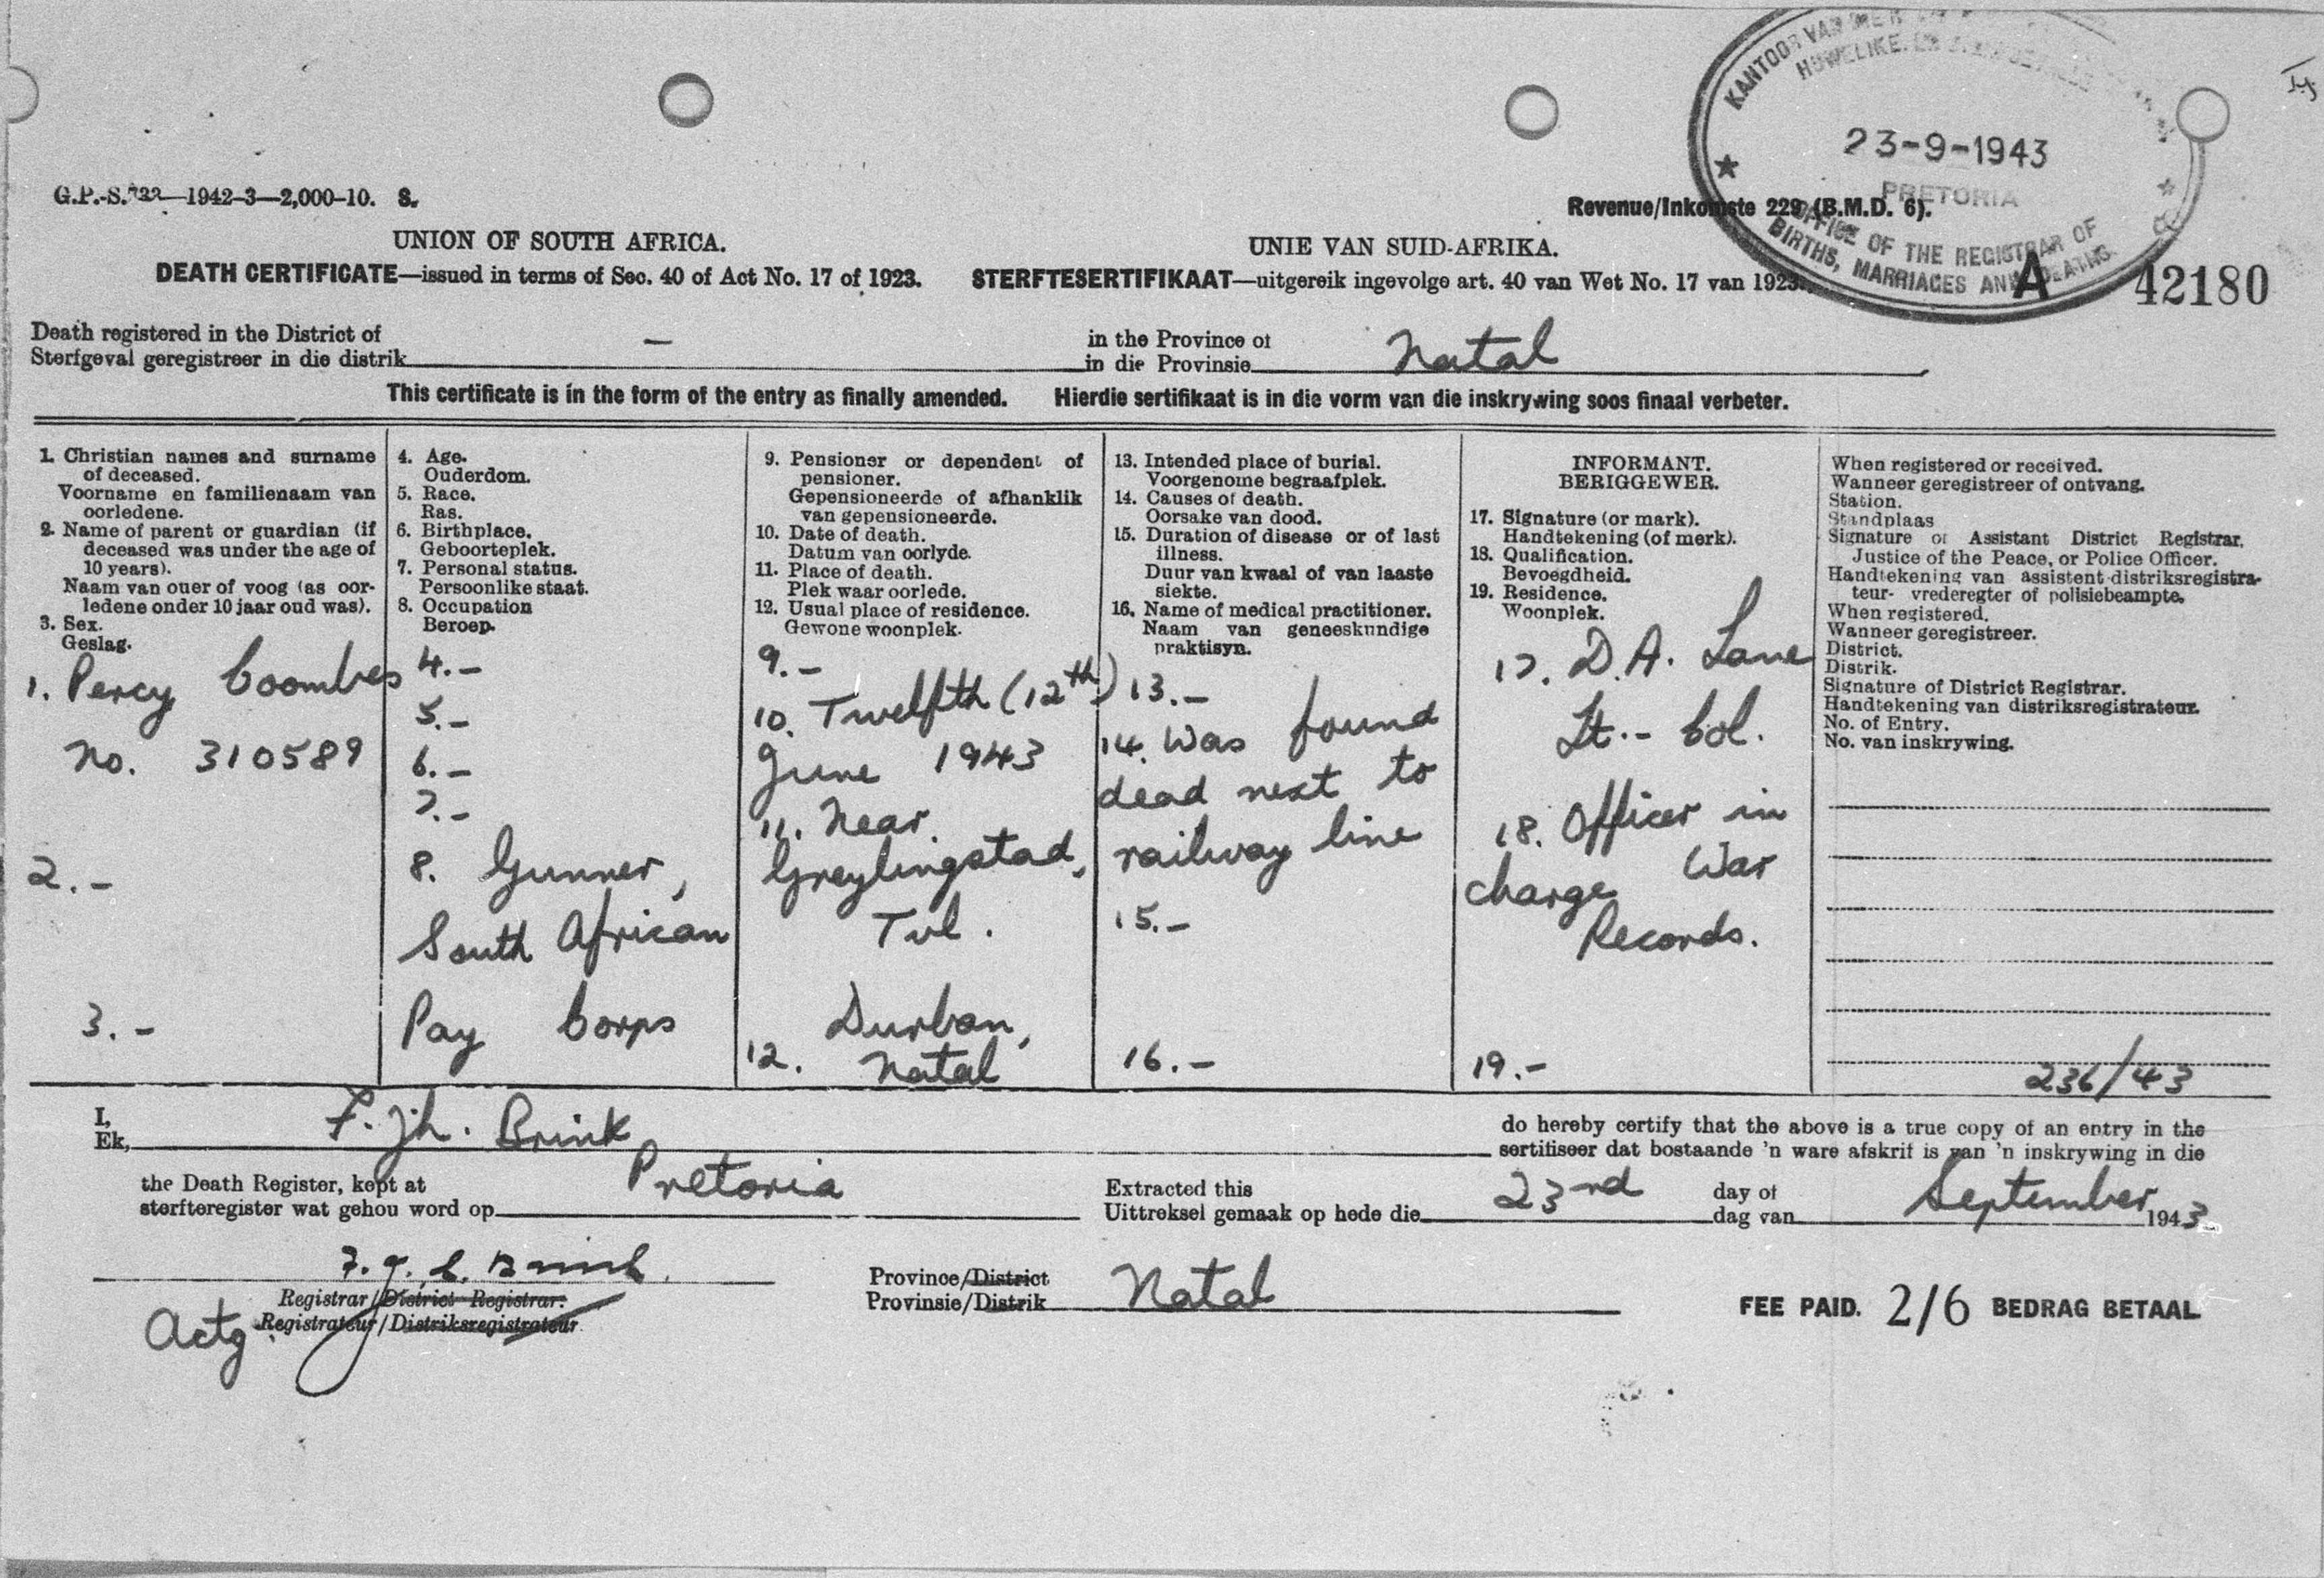 KANTOOR VAN
HUWELIKE
23-9-1943
PRETORIA
OFFICE OF THE REGISTRAR OF
BIRTHS, MARRIAGES AND DEATHS.
G.P.-S. —1942-3—2,000-10. S.
Revenue/Inkomste 229 (B.M.D. 6).
UNION OF SOUTH AFRICA.
UNIE VAN SUID-AFRIKA.
DEATH CERTIFICATE—issued in terms of Sec. 40 of Act No. 17 of 1923.
STERFTESERTIFIKAAT—uitgereik ingevolge art. 40 van Wet No. 17 van 1923.
A 42180
Death registered in the District of
Sterfgeval geregistreer in die distrik —
in the Province of
in die Provinsie Natal
This certificate is in the form of the entry as finally amended.
Hierdie sertifikaat is in die vorm van die inskrywing soos finaal verbeter.
1. Christian names and surname
of deceased.
Voorname en familienaam van
oorledene.
2. Name of parent or guardian (if
deceased was under the age of
10 years).
Naam van ouer of voog (as oor-
ledene onder 10 jaar oud was).
3. Sex.
Geslag.
1. Percy Coombes
No. 310589
2. -
3. -
4. Age.
Ouderdom.
5. Race.
Ras.
6. Birthplace.
Geboorteplek.
7. Personal status.
Persoonlike staat.
8. Occupation
Beroep.
4. -
5. -
6. -
7. -
8. Gunner,
South African
Pay Corps
9. Pensioner or dependent of
pensioner.
Gepensioneerde of afhanklik
van gepensioneerde.
10. Date of death.
Datum van oorlyde.
11. Place of death.
Plek waar oorlede.
12. Usual place of residence.
Gewone woonplek.
9. -
10. Twelfth (12th)
June 1943
11. Near
Greylingstad,
Tvl.
Durban,
12. Natal
13. Intended place of burial.
Voorgenome begraafplek.
14. Causes of death.
Oorsake van dood.
15. Duration of disease or of last
illness.
Duur van kwaal of van laaste
siekte.
16. Name of medical practitioner.
Naam van geneeskundige
praktisyn.
13. -
14. Was found
dead next to
railway line
15. -
16. -
INFORMANT.
BERIGGEWER.
17. Signature (or mark).
Handtekening (of merk).
18. Qualification.
Bevoegdheid.
19. Residence.
Woonplek.
17. D.A. Lane
Lt.- Col.
18. Officer in
charge War
Records.
19. -
When registered or received.
Wanneer geregistreer of ontvang.
Station.
Standplaas
Signature of Assistant District Registrar,
Justice of the Peace, or Police Officer.
Handtekening van assistent-distriksregistra-
teur- vrederegter of polisiebeampte.
When registered.
Wanneer geregistreer.
District.
Distrik.
Signature of District Registrar.
Handtekening van distriksregistrateur.
No. of Entry.
No. van inskrywing.
236/43
I,
Ek, F.J.h. Brink
do hereby certify that the above is a true copy of an entry in the
sertifiseer dat bostaande 'n ware afskrif is van 'n inskrywing in die
the Death Register, kept at
sterfteregister wat gehou word op Pretoria
Extracted this
Uittreksel gemaak op hede die 23rd
day of
dag van September 1943
Brink
Registrar/District Registrar.
Actg. Registrateur/Distriksregistrateur
Province/District
Provinsie/Distrik Natal
FEE PAID. 2/6 BEDRAG BETAAL